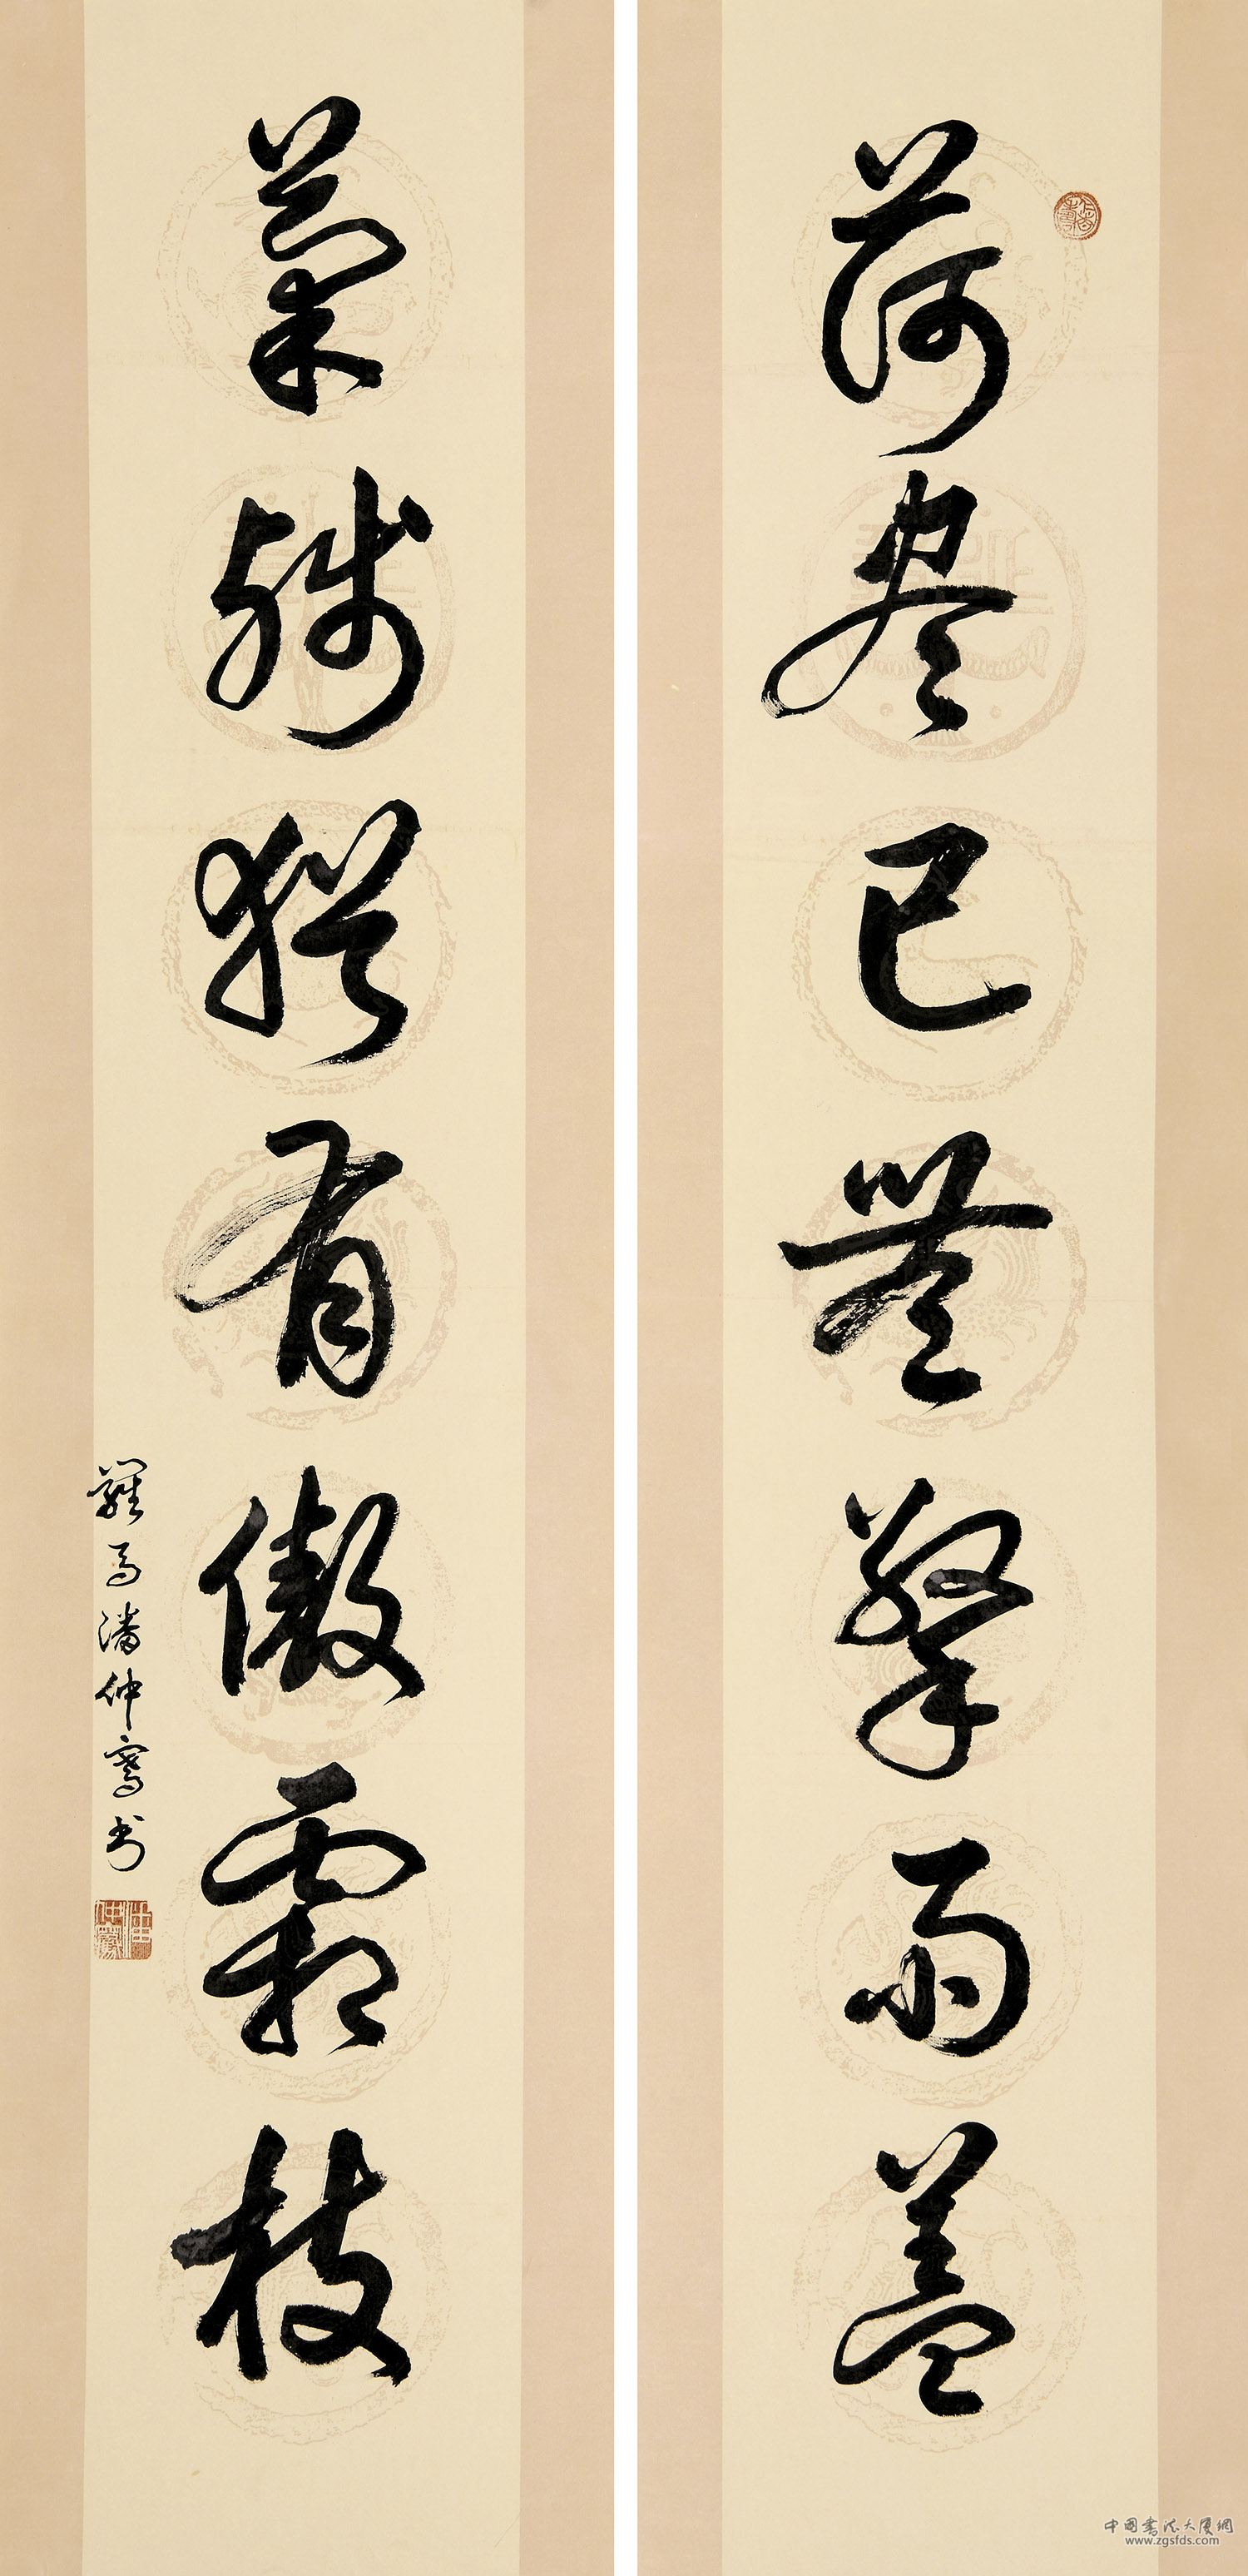 荷盡已無擎雨蓋
菊殘猶有傲霜枝
潘仲騫書
潘仲騫
中國書法大廈網
www.zgsfds.com